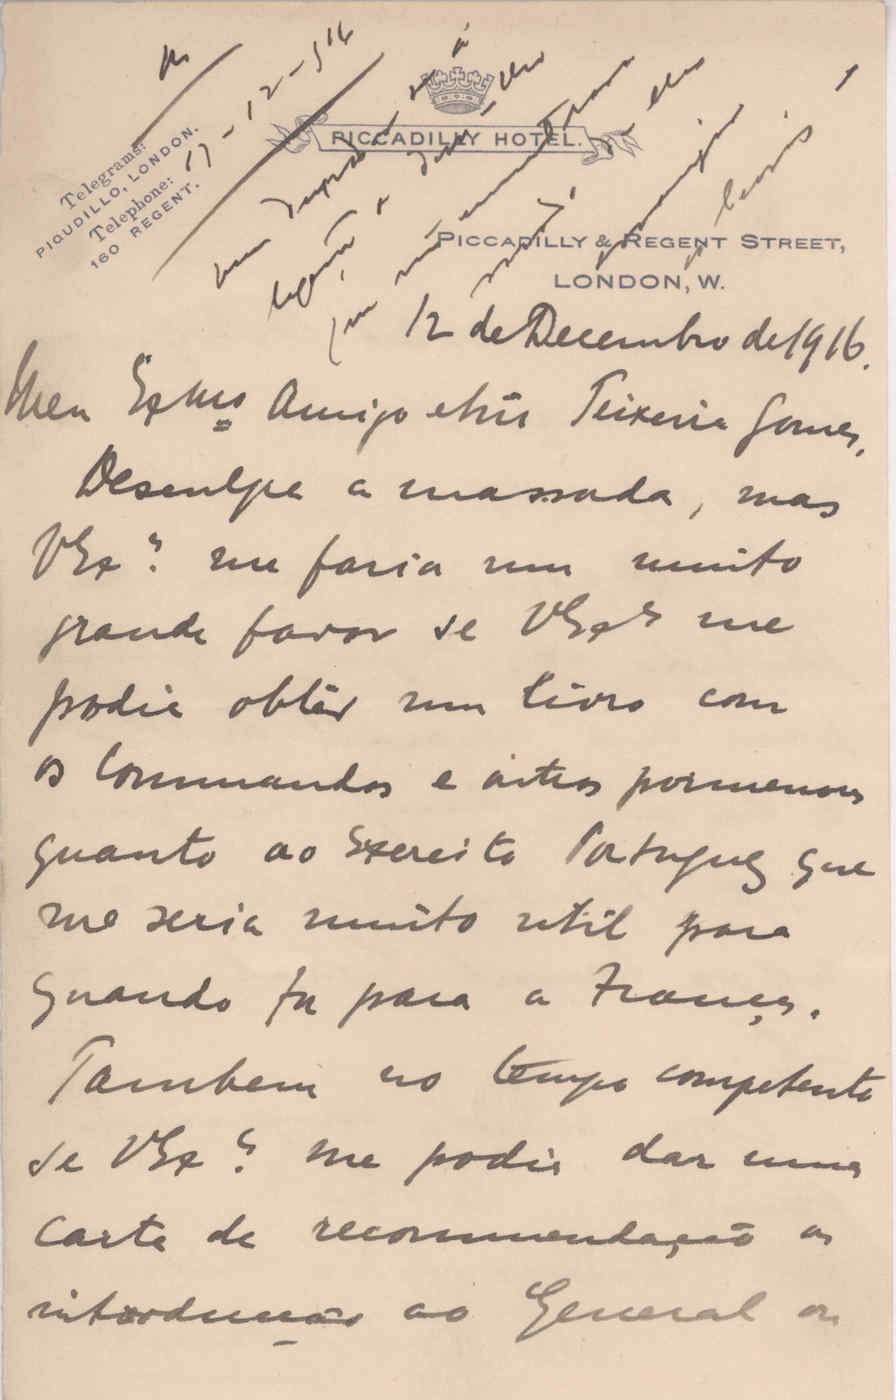 17-12-916
Telegrams:
PIQUDILLO, LONDON.
Telephone:
160 REGENT.
PICCADILLY HOTEL.
PICCADILLY & REGENT STREET,
LONDON, W.
12 de Decembro de 1916.
Meu Exmo Amigo e Snr Teixeira Gomes,
Desculpe a massada, mas
VExª me faria um muito
grande favor se VExª me
podia obter um livro com
os Commandos e outros pormenores
quanto ao Exercito Portuguez que
me seria muito util para
quando fu para a França.
Tambem no tempo competente
se VExª me podia dar uma
carta de recommendação ou
introducção ao General ou